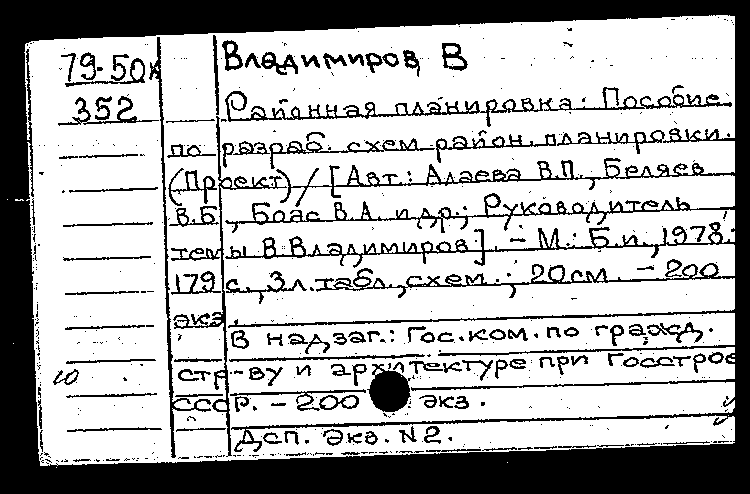 79-50к Владимиров В
352 Районная планировка: Пособие
по разраб. схем район. планировки.
(Проект) / [Авт.: Алаева В.П., Беляев
В.Б., Боас В.А. и др.; Руководитель
темы В.Владимиров]. - М.: Б.и., 1978.
179 с., 3 л. табл., схем.; 20 см. - 200
экз.
В надзаг.: Гос. ком. по гражд.
10 стр-ву и архитектуре при Госстрое
СССР. - 200 экз.
Дсп. Экз. N2.